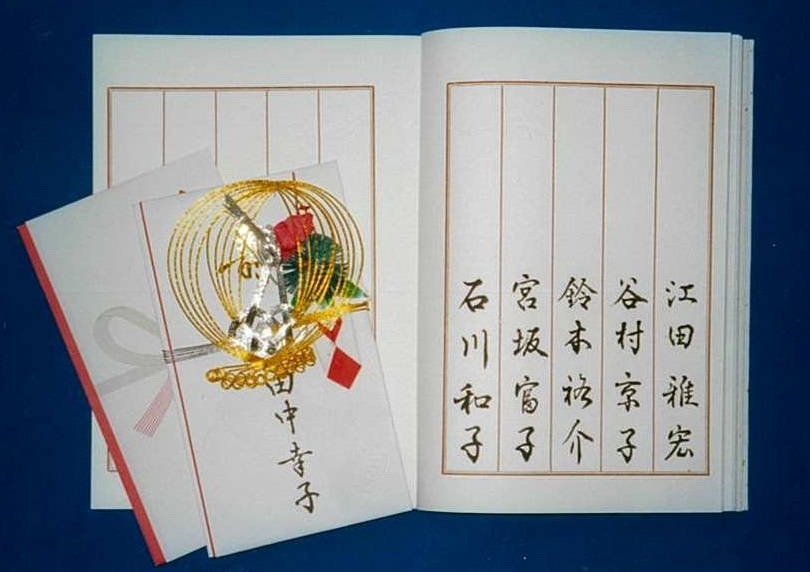 江田雅宏
谷村京子
鈴木裕介
宮坂富子
石川和子
田中幸子